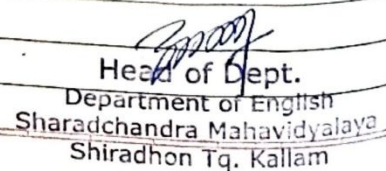 Head of Dept.
Department of English
Sharadchandra Mahavidyalaya
Shiradhon Tq. Kallam